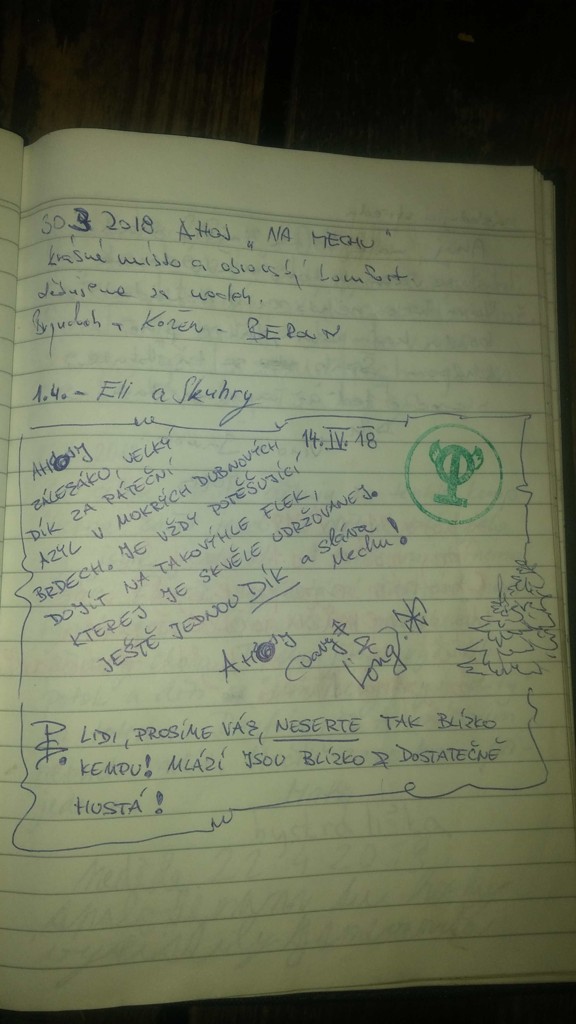 30.3 2018 AHOJ „NA MECHU"
krásné místo a obrovský komfort.
děkujeme za nocleh.
+ KOŽEN - BEROUN
1.4. - Eli a Skuhry
14. IV. 18
AHOJ
ZÁLESÁKO, VELKÝ
DÍK ZA PÁTEČNÍ
AZYL V MOKRÝCH DUBNOVÝCH
BRDECH. JE VŽDY POTĚŠUJÍCÍ
DOJÍT NA TAKOVÝHLE FLEK,
KTEREJ JE SKVĚLE UDRŽOVANEJ.
JEŠTĚ JEDNOU DÍK a Sláva
Mechu!
PS. LIDI, PROSÍME VÁS, NESERTE TAK BLÍZKO
KEMPU! MLÁZÍ JSOU BLÍZKO DOSTATEČNĚ
HUSTÁ!